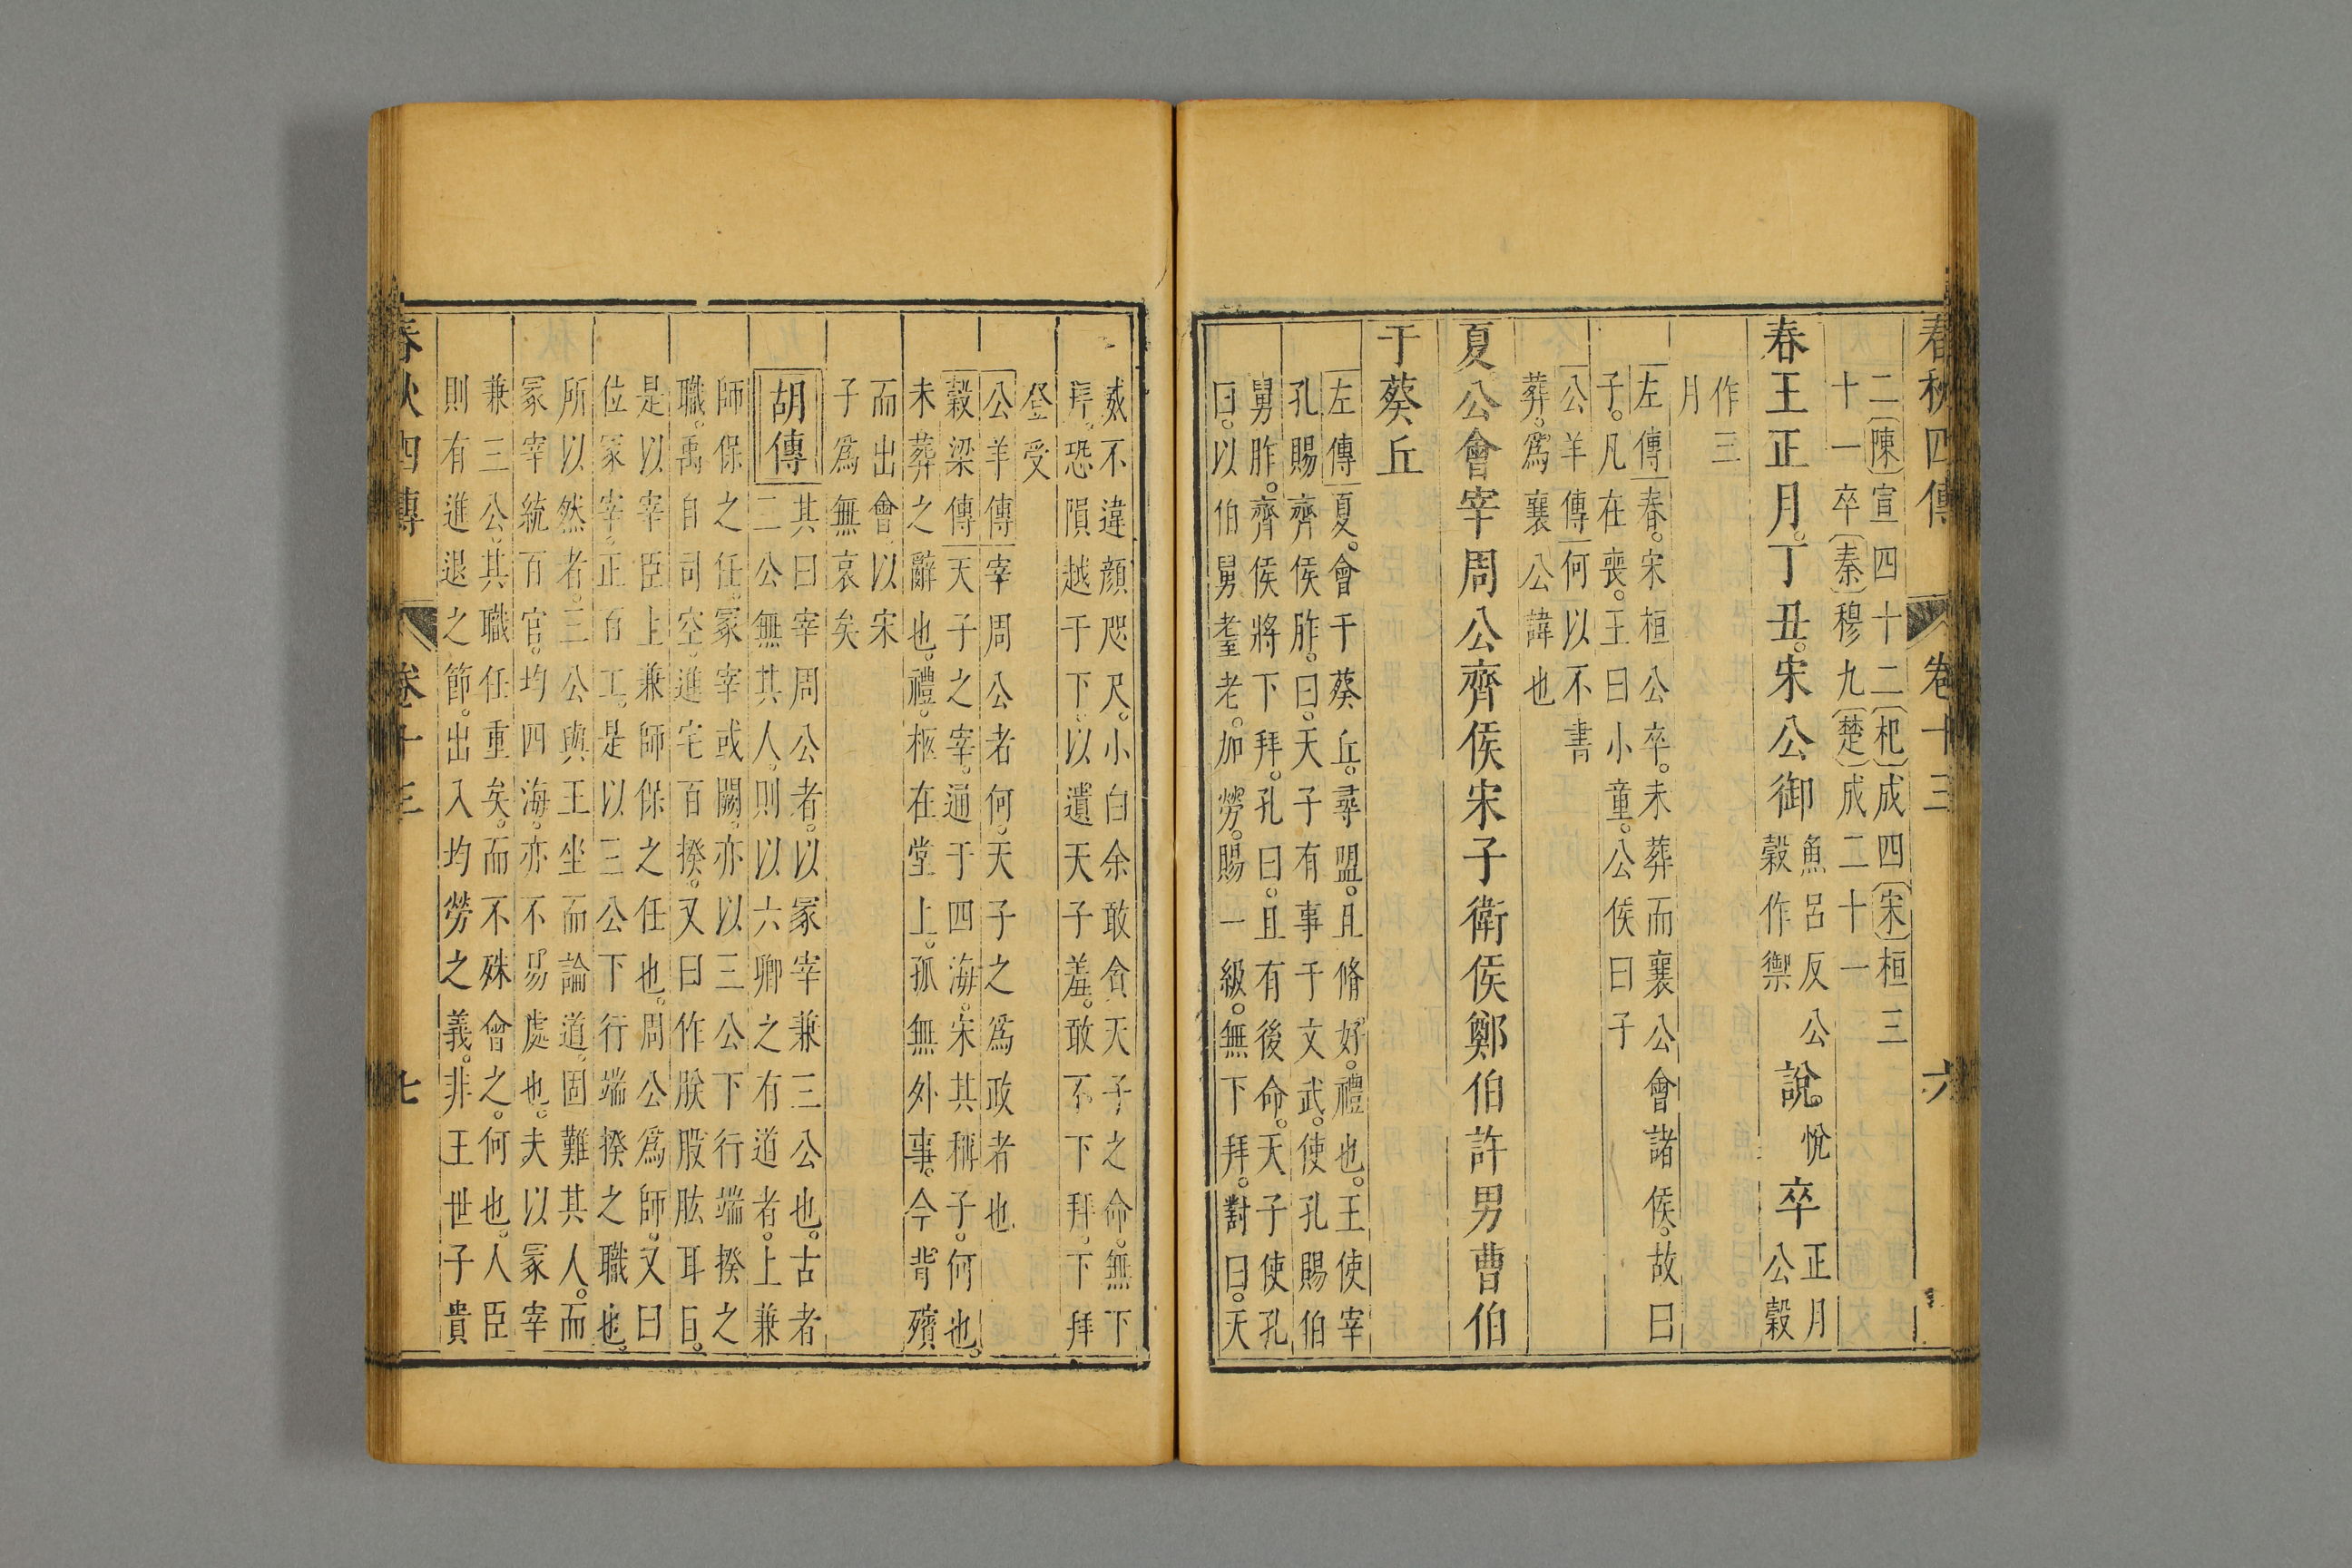 春秋四傳 卷十三 六
二〔陳〕宣四十二〔杞〕成四〔宋〕桓三
十一卒〔秦〕穆九〔楚〕成二十一
春王正月。丁丑。宋公御魚呂反公穀作禦說。悅卒正月公穀
作三
月
左傳春。宋桓公卒。未葬而襄公會諸侯。故曰
子。凡在喪。王曰小童。公侯曰子
公羊傳何以不書
葬。爲襄公諱也
夏公會宰周公齊侯宋子衛侯鄭伯許男曹伯
于葵丘
左傳夏。會于葵丘。尋盟。且脩好。禮也。王使宰
孔賜齊侯胙。曰。天子有事于文武。使孔賜伯
舅胙。齊侯將下拜。孔曰。且有後命。天子使孔
曰。以伯舅耋老。加勞。賜一級。無下拜。對曰。天
威不違顏咫尺。小白余敢貪天子之命。無下
拜。恐隕越于下。以遺天子羞。敢不下拜。下拜
登受
公羊傳宰周公者何。天子之爲政者也
穀梁傳天子之宰。通于四海。宋其稱子。何也。
未葬之辭也。禮。柩在堂上。孤無外事。今背殯
而出會。以宋
子爲無哀矣
胡傳其曰宰周公者。以冢宰兼三公也。古者
二公無其人。則以六卿之有道者。上兼
師保之任。冢宰或闕。亦以三公下行端揆之
職。禹自司空。進宅百揆。又曰作朕股肱耳目。
是以宰臣上兼師保之任也。周公爲師。又曰
位冢宰。正百工。是以三公下行端揆之職也。
所以然者。三公與王坐而論道。固難其人。而
冢宰統百官。均四海。亦不易處也。夫以冢宰
兼三公。其職任重矣。而不殊會之。何也。人臣
則有進退之節。出入均勞之義。非王世子貴
春秋四傳 卷十三 七